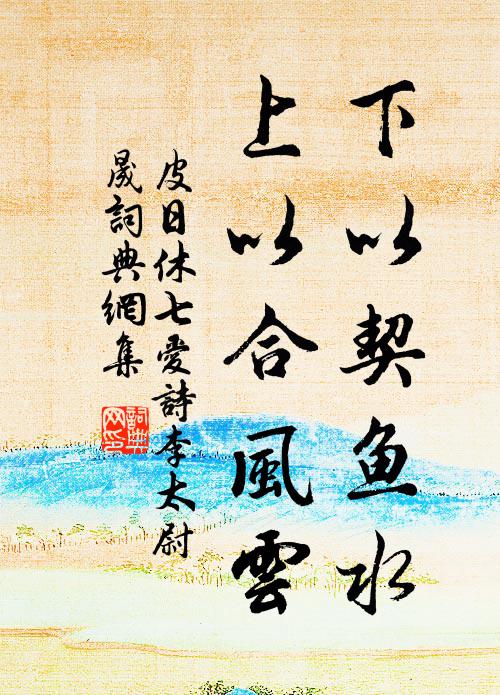 下以契鱼水
上以合風雲
皮日休七愛詩李太尉
晟詞典網集
詞典网印